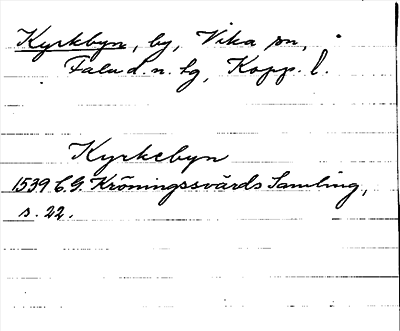 Kyrkbyn, by, Vika sn,
Falu d. n. tg, Kopp. l.
Kyrkebyn
1539 C. G. Kröningssvärds Samling,
s. 22.